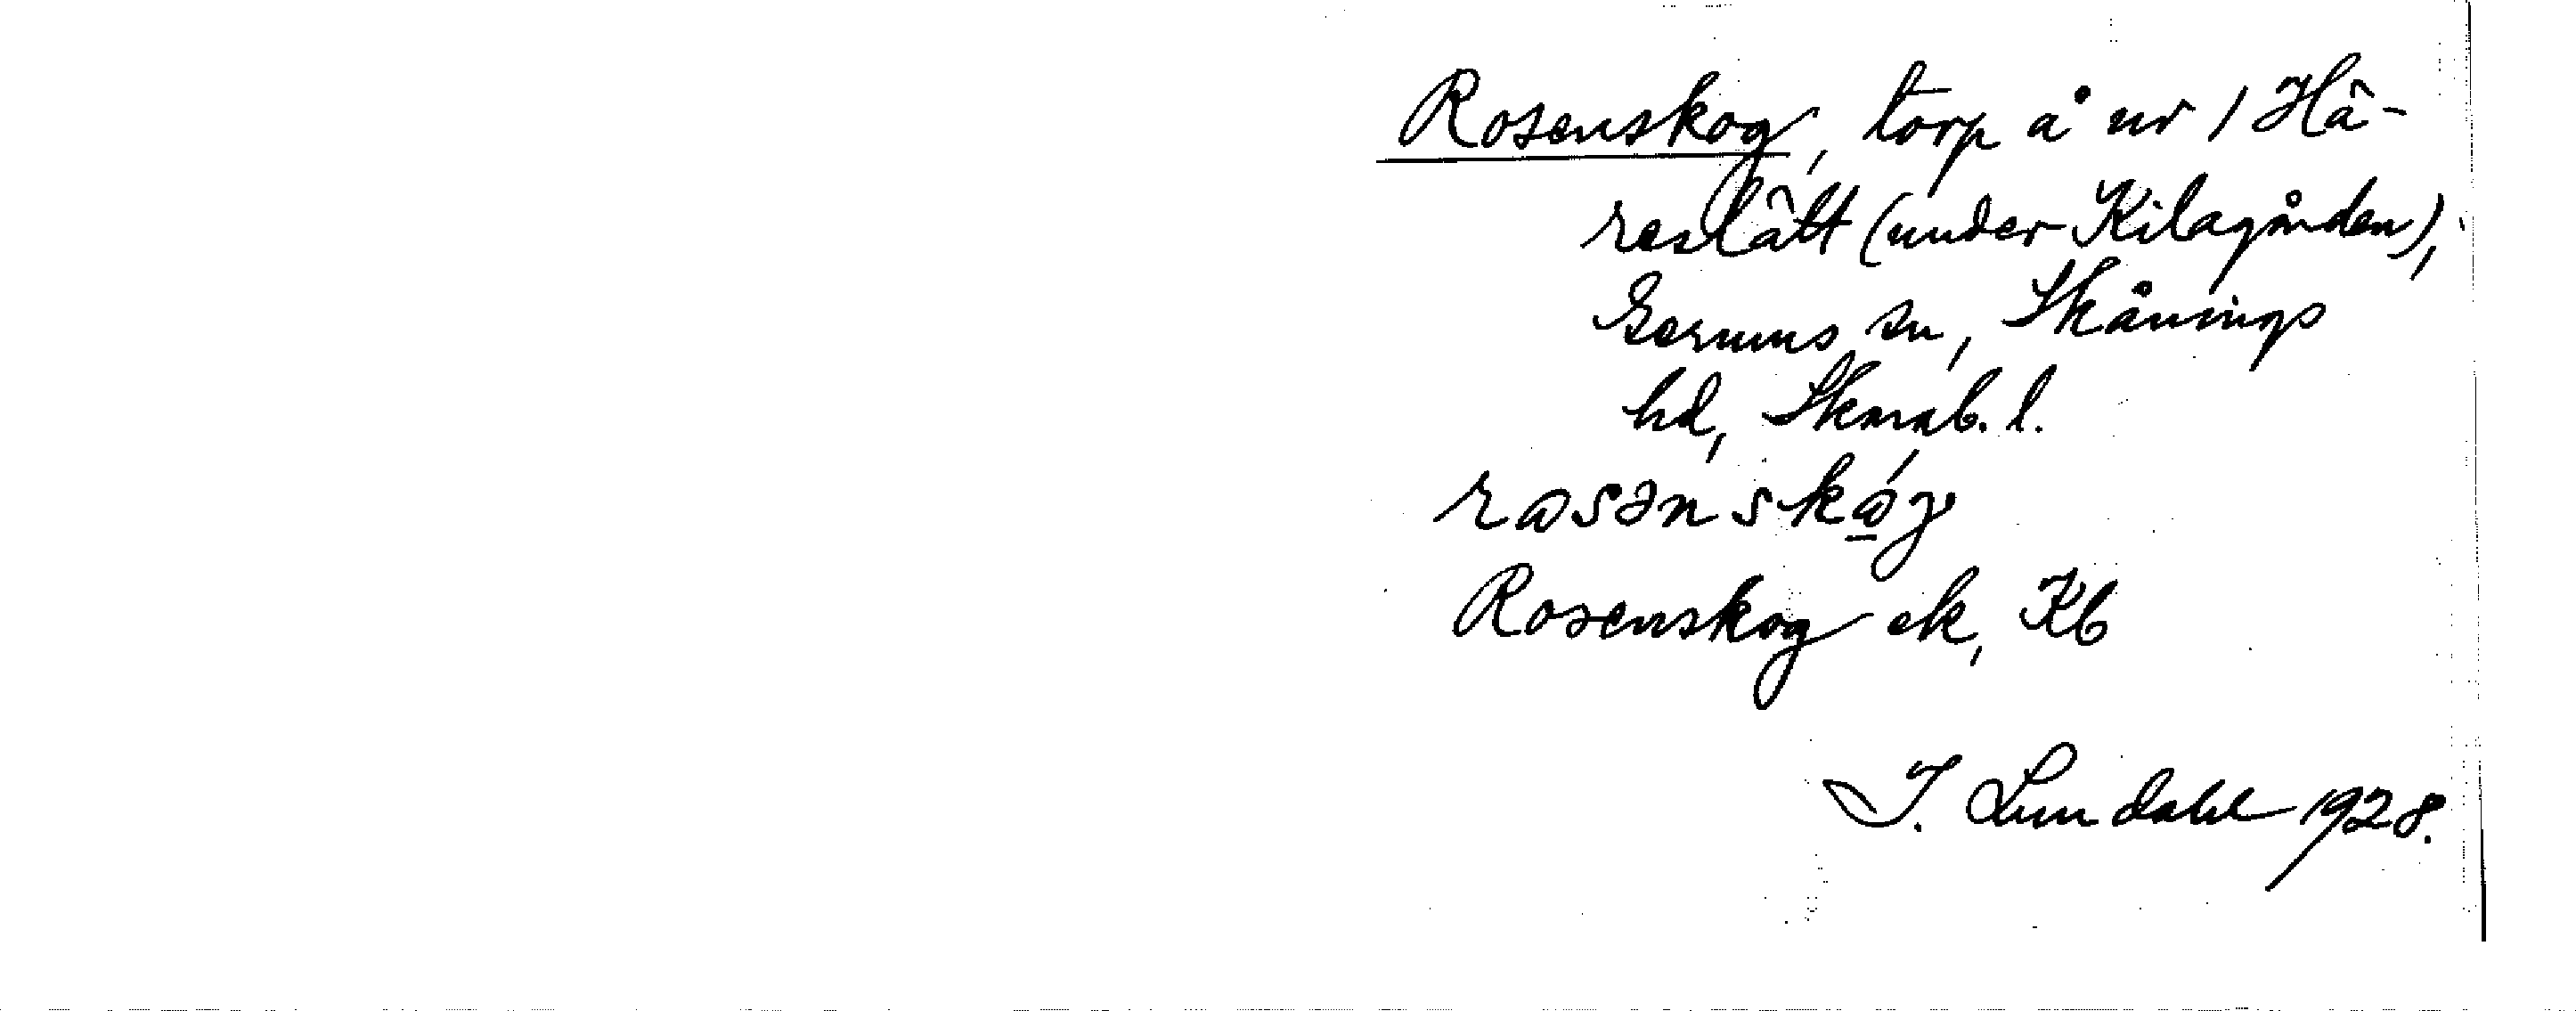 Rosenskog, torp å nr 1 Hä-
reslätt (under Kilagården),
Gerums sn, Skånings
hd, Skarab. l.
rasənskáꞬ
Rosenskog ek, Kb
I. Lundahl 1928.